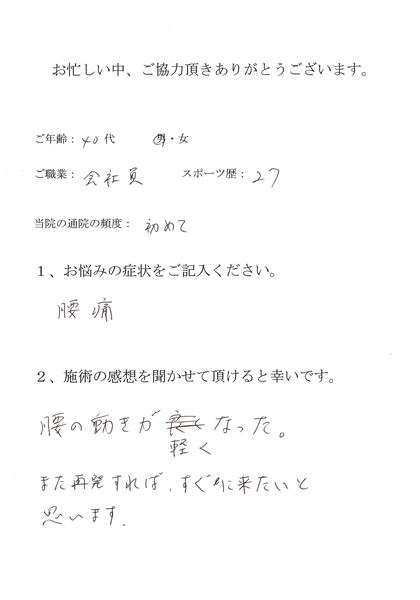 お忙しい中、ご協力頂きありがとうございます。
ご年齢：40代　男・女
ご職業：会社員　スポーツ歴：27
当院の通院の頻度：初めて
1、お悩みの症状をご記入ください。
腰痛
2、施術の感想を聞かせて頂けると幸いです。
腰の動きが良くなった。
軽く
また再発すれば、すぐに来たいと
思います.